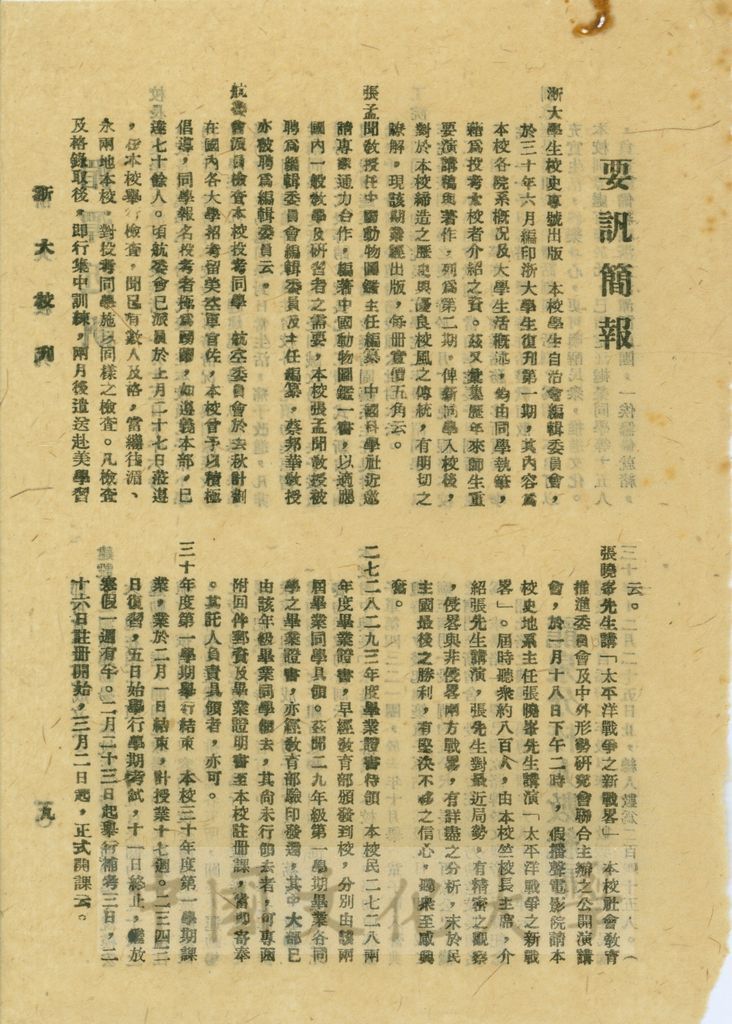 要訊簡報
浙大學生校史專號出版　本校學生自治會編輯委員會，
於三十年六月編印浙大學生復刊第一期，其內容爲
本校各院系概况及大學生活概述，均由同學執筆，
藉爲投考本校者介紹之資。茲又彙集歷年來師生重
要演講稿與著作，列爲第二期。俾新同學入校後，
對於本校締造之歷史與優良校風之傳統，有明切之
瞭解。現該期業經出版，每冊實價五角云。
張孟聞教授任中國動物圖鑑主任編纂　中國科學社近邀
請專家通力合作，編著中國動物圖鑑一書，以適應
國內一般敎學及研習者之需要，本校張孟聞敎授被
聘爲編輯委員會編輯委員及主任編纂，蔡邦華敎授
亦被聘爲編輯委員云。
航委會派員檢查本校投考同學　航空委員會於去秋計劃
在國內各大學招考留美空軍官佐，本校曾予以積極
倡導，同學報名投考者極爲踴躍，如遵義本部，已
達七十餘人。頃航委會已派員於上月二十七日蒞遵
，在本校舉行檢查，聞已有數人及格，當繼往湄、
永兩地本校，對投考同學施以同樣之檢查。凡檢查
及格錄取後，卽行集中訓練，兩月後遣送赴美學習
云。
張曉峯先生講「太平洋戰爭之新戰畧」　本校社會敎育
推進委員會及中外形勢研究會聯合主辦之公開演講
會，於一月十八日下午二時，假播聲電影院請本
校史地系主任張曉峯先生講演「太平洋戰爭之新戰
畧」。屆時聽衆約八百人，由本校竺校長主席，介
紹張先生講演，張先生對最近局勢，有精密之觀察
，侵畧與非侵畧兩方戰畧，有詳盡之分析，末於民
主國最後之勝利，有堅決不移之信心，聽衆至感興
奮。
二七二八二九三年度畢業證書待領　本校民二七二八兩
年度畢業證書，早經敎育部頒發到校，分別由該兩
屆畢業同學具領。茲聞二九年級第一學期畢業各同
學之畢業證書，亦經敎育部驗印發還，其中大部已
由該年級畢業同學領去，其尙未行領去者，可專函
附回件郵費及畢業證明書至本校註册課，當卽寄奉
。其託人員責具領者，亦可。
三十年度第一學期舉行結束　本校三十年度第一學期課
業，業於二月一日結束，計授業十七週。二三四三
日復習，五日始舉行學期考試，十一日終止，繼放
寒假一週有半。二月二十三日起舉行補考三日，二
十六日註册開始，三月二日起，正式開課云。
浙大校刊
九